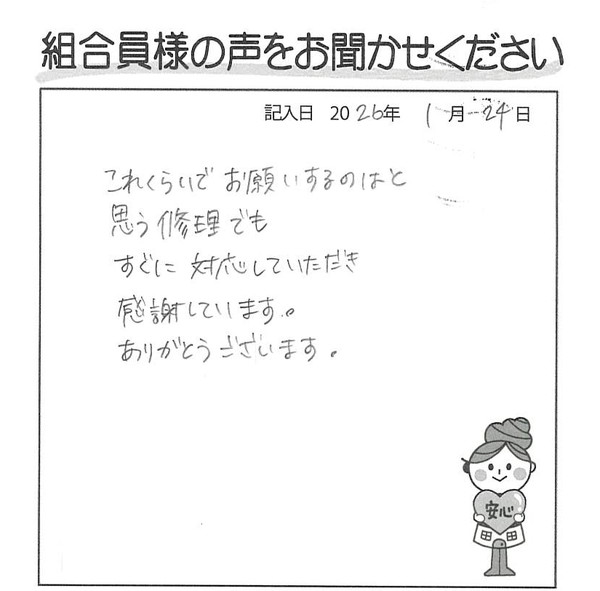 組合員様の声をお聞かせください
記入日 2026年 1月24日
これくらいで お願いするのはと
思う修理でも
すぐに 対応していただき
感謝しています。
ありがとうございます。
安心